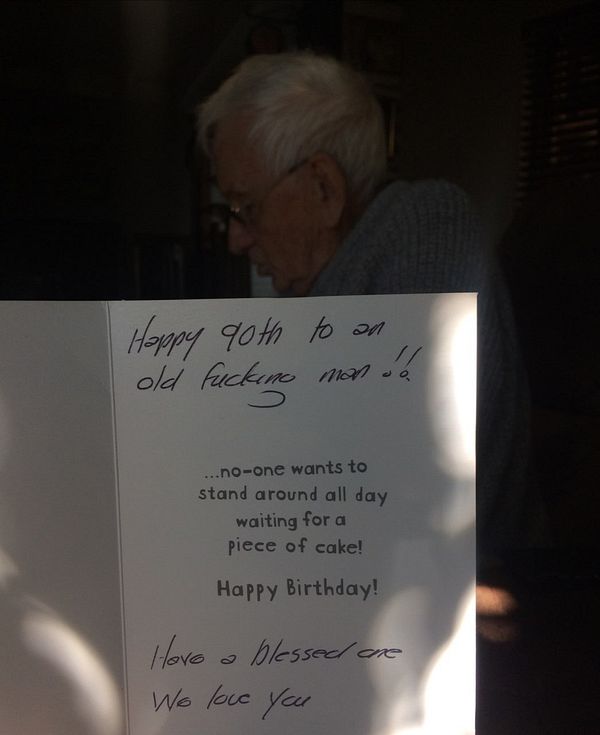 Happy 90th to an
old fucking man !!
...no-one wants to
stand around all day
waiting for a
piece of cake!
Happy Birthday!
Have a blessed one
We love you